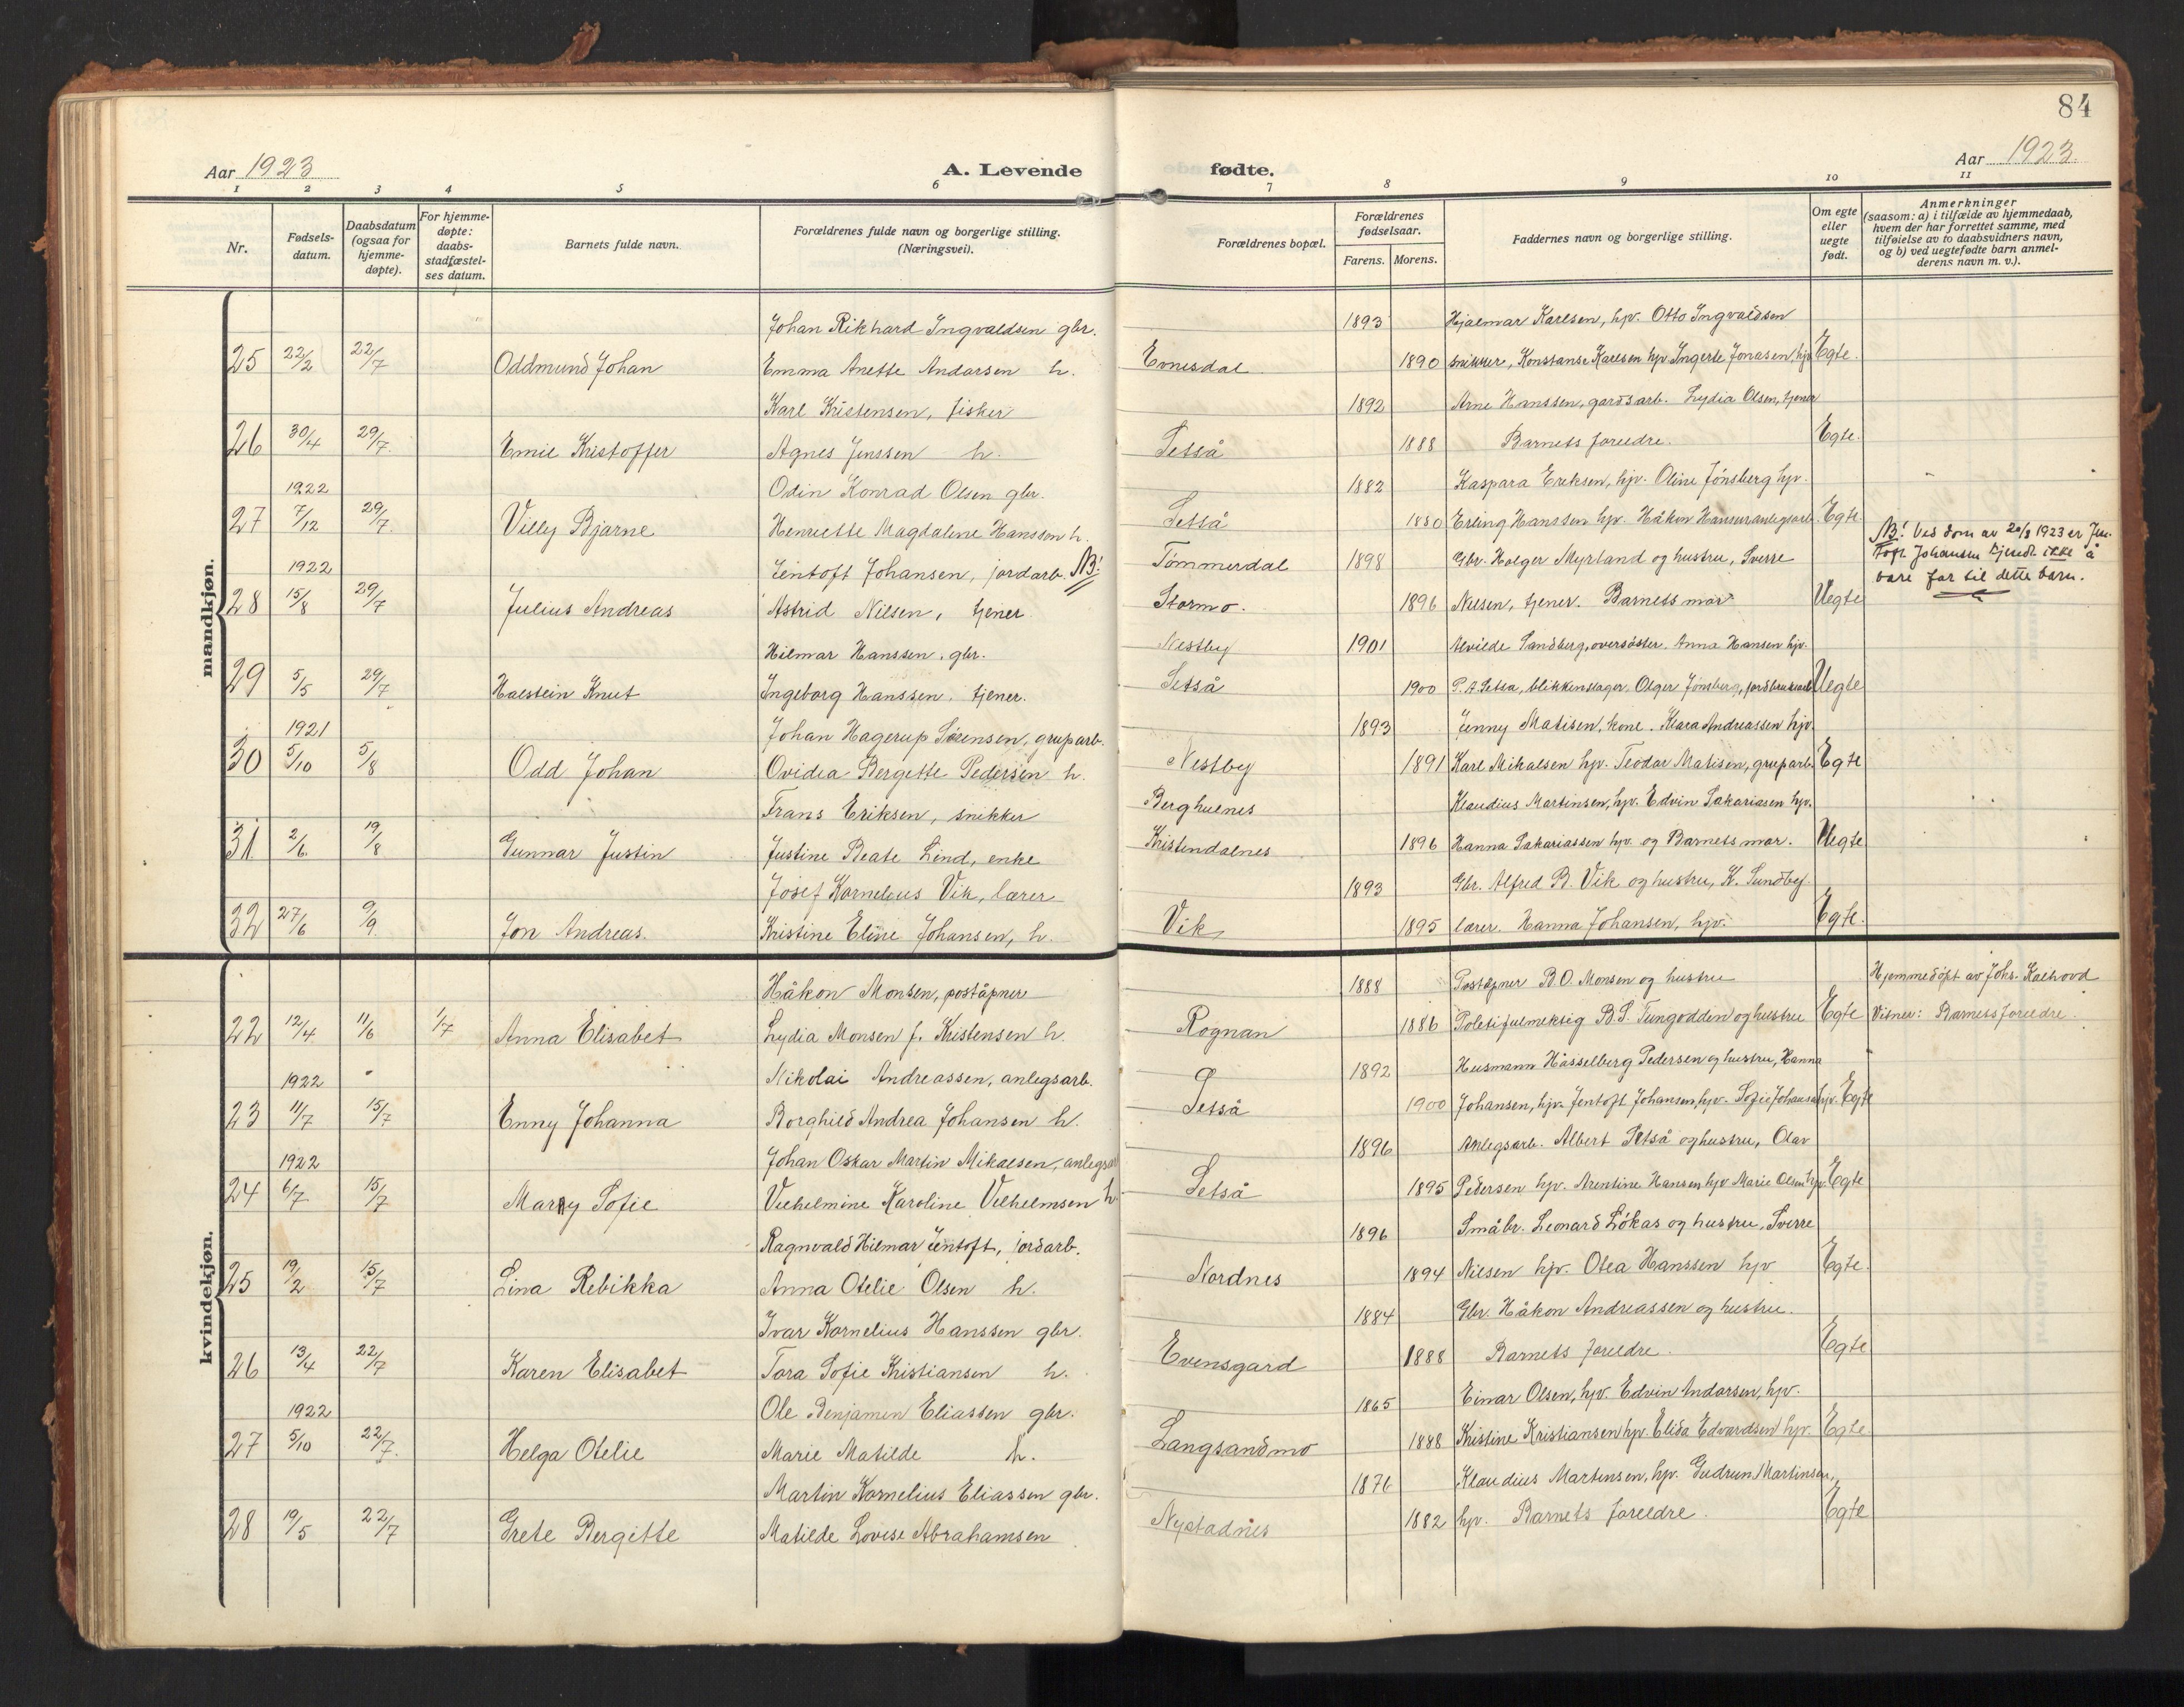 84
Aar 1923
A. Levende
fødte.
Aar 1923.
1 2 3 4 5 6 7 8 9 10 11
Nr.
Fødsels-
datum.
Daabsdatum
(ogsaa for
hjemme-
døpte).
For hjemme-
døpte:
daabs-
stadfæstel-
ses datum.
Barnets fulde navn.
Forældrenes fulde navn og borgerlige stilling.
(Næringsvei).
Forældrenes bopæl.
Forældrenes
fødselsaar.
Farens. Morens.
Faddernes navn og borgerlige stilling.
Om egte
eller
uegte
født.
Anmerkninger
(saasom: a) i tilfælde av hjemmedaab,
hvem der har forrettet samme, med
tilføielse av to daabsvidners navn,
og b) ved uegtefødte barn anmel-
derens navn m. v.).
mandkjøn.
Johan Rikhard Ingvaldsen gbr. 1893 Hjalmar Karlsen, hjv. Otto Ingvaldsen
25 22/2 22/7 Oddmund Johan Emma Anette Andorsen h. Evnesdal 1890 snikker, Konstanse Karlsen hjv. Ingerte Jonasen, hjv Egte.
Karl Kristensen, fisker 1892 Arne Hanssen, gardsarb. Lydia Olsen, tjener
26 30/4 29/7. Emil Kristoffer Agnes Jenssen h. Setså 1888 Barnets foreldre. Egte.
1922 Odin Konrad Olsen gbr. 1882 Kaspara Eriksen, hjv. Oline Jónsberg hjv.
27 7/12 29/7. Villy Bjarne Henriette Magdalene Hanssen h. Setså 1880 Erling Hanssen hjv. Håkon Hansen anlegsarb. Egte.
1922 Jentoft Johansen, jordarb. NB! Tømmerdal 1898 Gbr. Holger Myrland og hustru, Sverre
NB! Ved dom av 20/3 1923 er Jen-
toft Johansen kjendt ikke å
vare far til dette barn.
28 15/8 29/7 Julius Andreas Astrid Nilsen, tjener Stormo. 1896 Nilsen, tjener. Barnets mor Uegte
Hilmar Hanssen, gbr. Nestby 1901 Alvilde Sandberg, oversøster. Anna Hansen hjv.
29 5/5 29/7 Halstein Knut Ingeborg Hanssen, tjener. Setså 1900 P. A. Setsa, blikkenslager. Olger Jónsberg, jordbruksarb Uegte
1921 Johan Hagerup Sørensen, gruparb. 1893 Jenny Matisen, kone. Klara Andreassen hjv.
30 5/10 5/8 Odd Johan Ovidia Bergette Pedersen h. Nestby 1891 Karl Mikalsen hjv. Teodor Matisen, gruparb. Egte
Frans Eriksen, snikker Berghulnes Klaudius Martinsen, hjv. Edvin Sakariasen hjv.
31 2/6 19/8 Gunnar Justin Justine Beate Lind, enke Kristendalnes 1896 Hanna Sakariassen hjv. og Barnets mor. Uegte
Josef Kornelius Vik, lærer 1893 Gbr. Alfred B. Vik og hustru, K. Sundby
32 27/6 9/9 Jon Andreas. Kristine Eline Johansen, h. Vik 1895 lærer. Hanna Johansen, hjv. Egte.
kvindekjøn.
Håkon Monsen, poståpner 1888 Poståpner B. O. Monsen og hustru Hjemmedøpt av Johs. Kalhovd
22 12/4 11/6 1/7 Anna Elisabet Lydia Monsen f. Kristensen h. Rognan 1886 Politifulmektig B. S. Tungodden og hustru Egte Vitner: Barnets foreldre.
1922 Nikolai Andreassen, anlegsarb. 1892 Husmann Hasselberg Pedersen og hustru, Hanna
23 11/7 15/7 Enny Johanna Borghild Andrea Johansen h. Setså 1900 Johansen, hjv. Jentoft Johansen, hjv. Sofie Johansen hjv. Egte
1922 Johan Oskar Martin Mikalsen, anlegsarb 1896 Anlegsarb. Albert Setså og hustru, Olav
24 6/7 15/7 Marry Sofie Vilhelmine Karoline Vilhelmsen h. Setså 1895 Pedersen hjv. Arentine Hansen hjv Marie Olsen hjv. Egte
Ragnvald Hilmar Jentoft, jordarb. 1896 Småbr. Leonard Løkas og hustru, Sverre
25 19/2 15/7 Lina Rebikka Anna Otelie Olsen h. Nordnes 1894 Nilsen hjv. Otea Hanssen hjv Egte.
Ivar Kornelius Hanssen gbr. 1884 Gbr. Håkon Andreassen og hustru.
26 13/4 22/7 Karen Elisabet Tora Sofie Kristiansen h. Evensgard 1888 Barnets foreldre. Egte
1922 Ole Benjamen Eliassen gbr. 1865 Einar Olsen, hjv. Edvin Andorsen, hjv.
27 5/10 22/7. Helga Otelie Marie Matilde h. Langsandmo 1888 Kristine Kristiansen hjv. Elida Edvardsen hjv. Egte
Martin Kornelius Eliassen gbr. 1876 Klaudius Martinsen, hjv. Gudrun Martinsen,
28 19/5 22/7 Grete Bergitte Matilde Lovise Abrahamsen Nystadnes 1882 hjv. Barnets foreldre. Egte